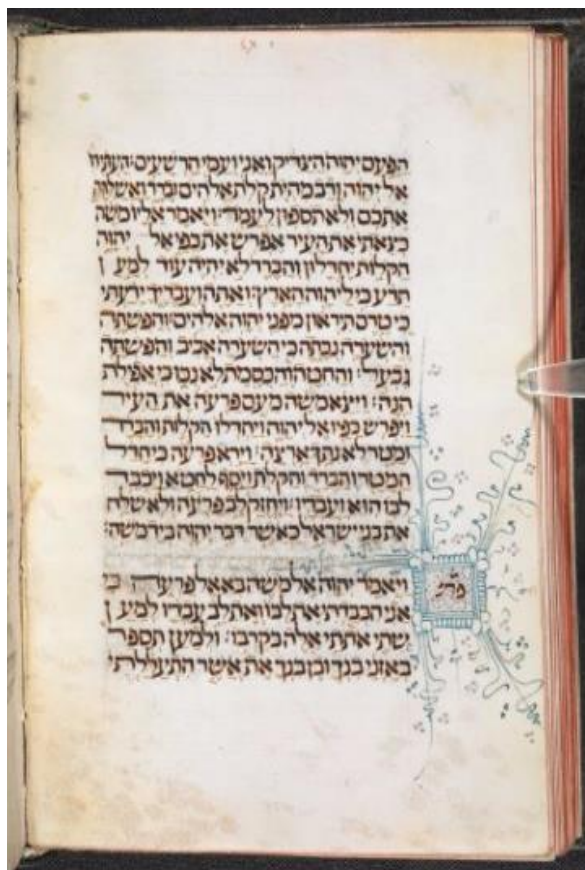 הפעם יהוה הצדיק ואני ועמי הרשעים׃ העתירו
אל יהוה ורב מהית קלת אלהים וברד ואשלחה
אתכם ולא תספון לעמד׃ ויאמר אליו משה
כצאתי את העיר אפרש את כפי אל יהוה
הקלות יחדלון והברד לא יהיה עוד למען
תדע כי ליהוה הארץ׃ ואתה ועבדיך ידעתי
כי טרם תיראון מפני יהוה אלהים׃ והפשתה
והשערה נכתה כי השערה אביב והפשתה
גבעל׃ והחטה והכסמת לא נכו כי אפילת
הנה׃ ויצא משה מעם פרעה את העיר
ויפרש כפיו אל יהוה ויחדלו הקלות והברד
ומטר לא נתך ארצה׃ וירא פרעה כי חדל
המטר והברד והקלת ויסף לחטא ויכבד
לבו הוא ועבדיו׃ ויחזק לב פרעה ולא שלח
את בני ישראל כאשר דבר יהוה ביד משה׃
ויאמר יהוה אל משה בא אל פרעה כי
אני הכבדתי את לבו ואת לב עבדיו למען
שתי אתתי אלה בקרבו׃ ולמען תספר
באזני בנך ובן בנך את אשר התעללתי